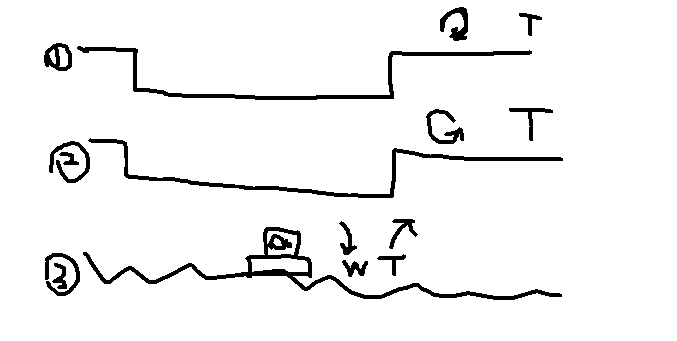 ① T
② T
③ W T